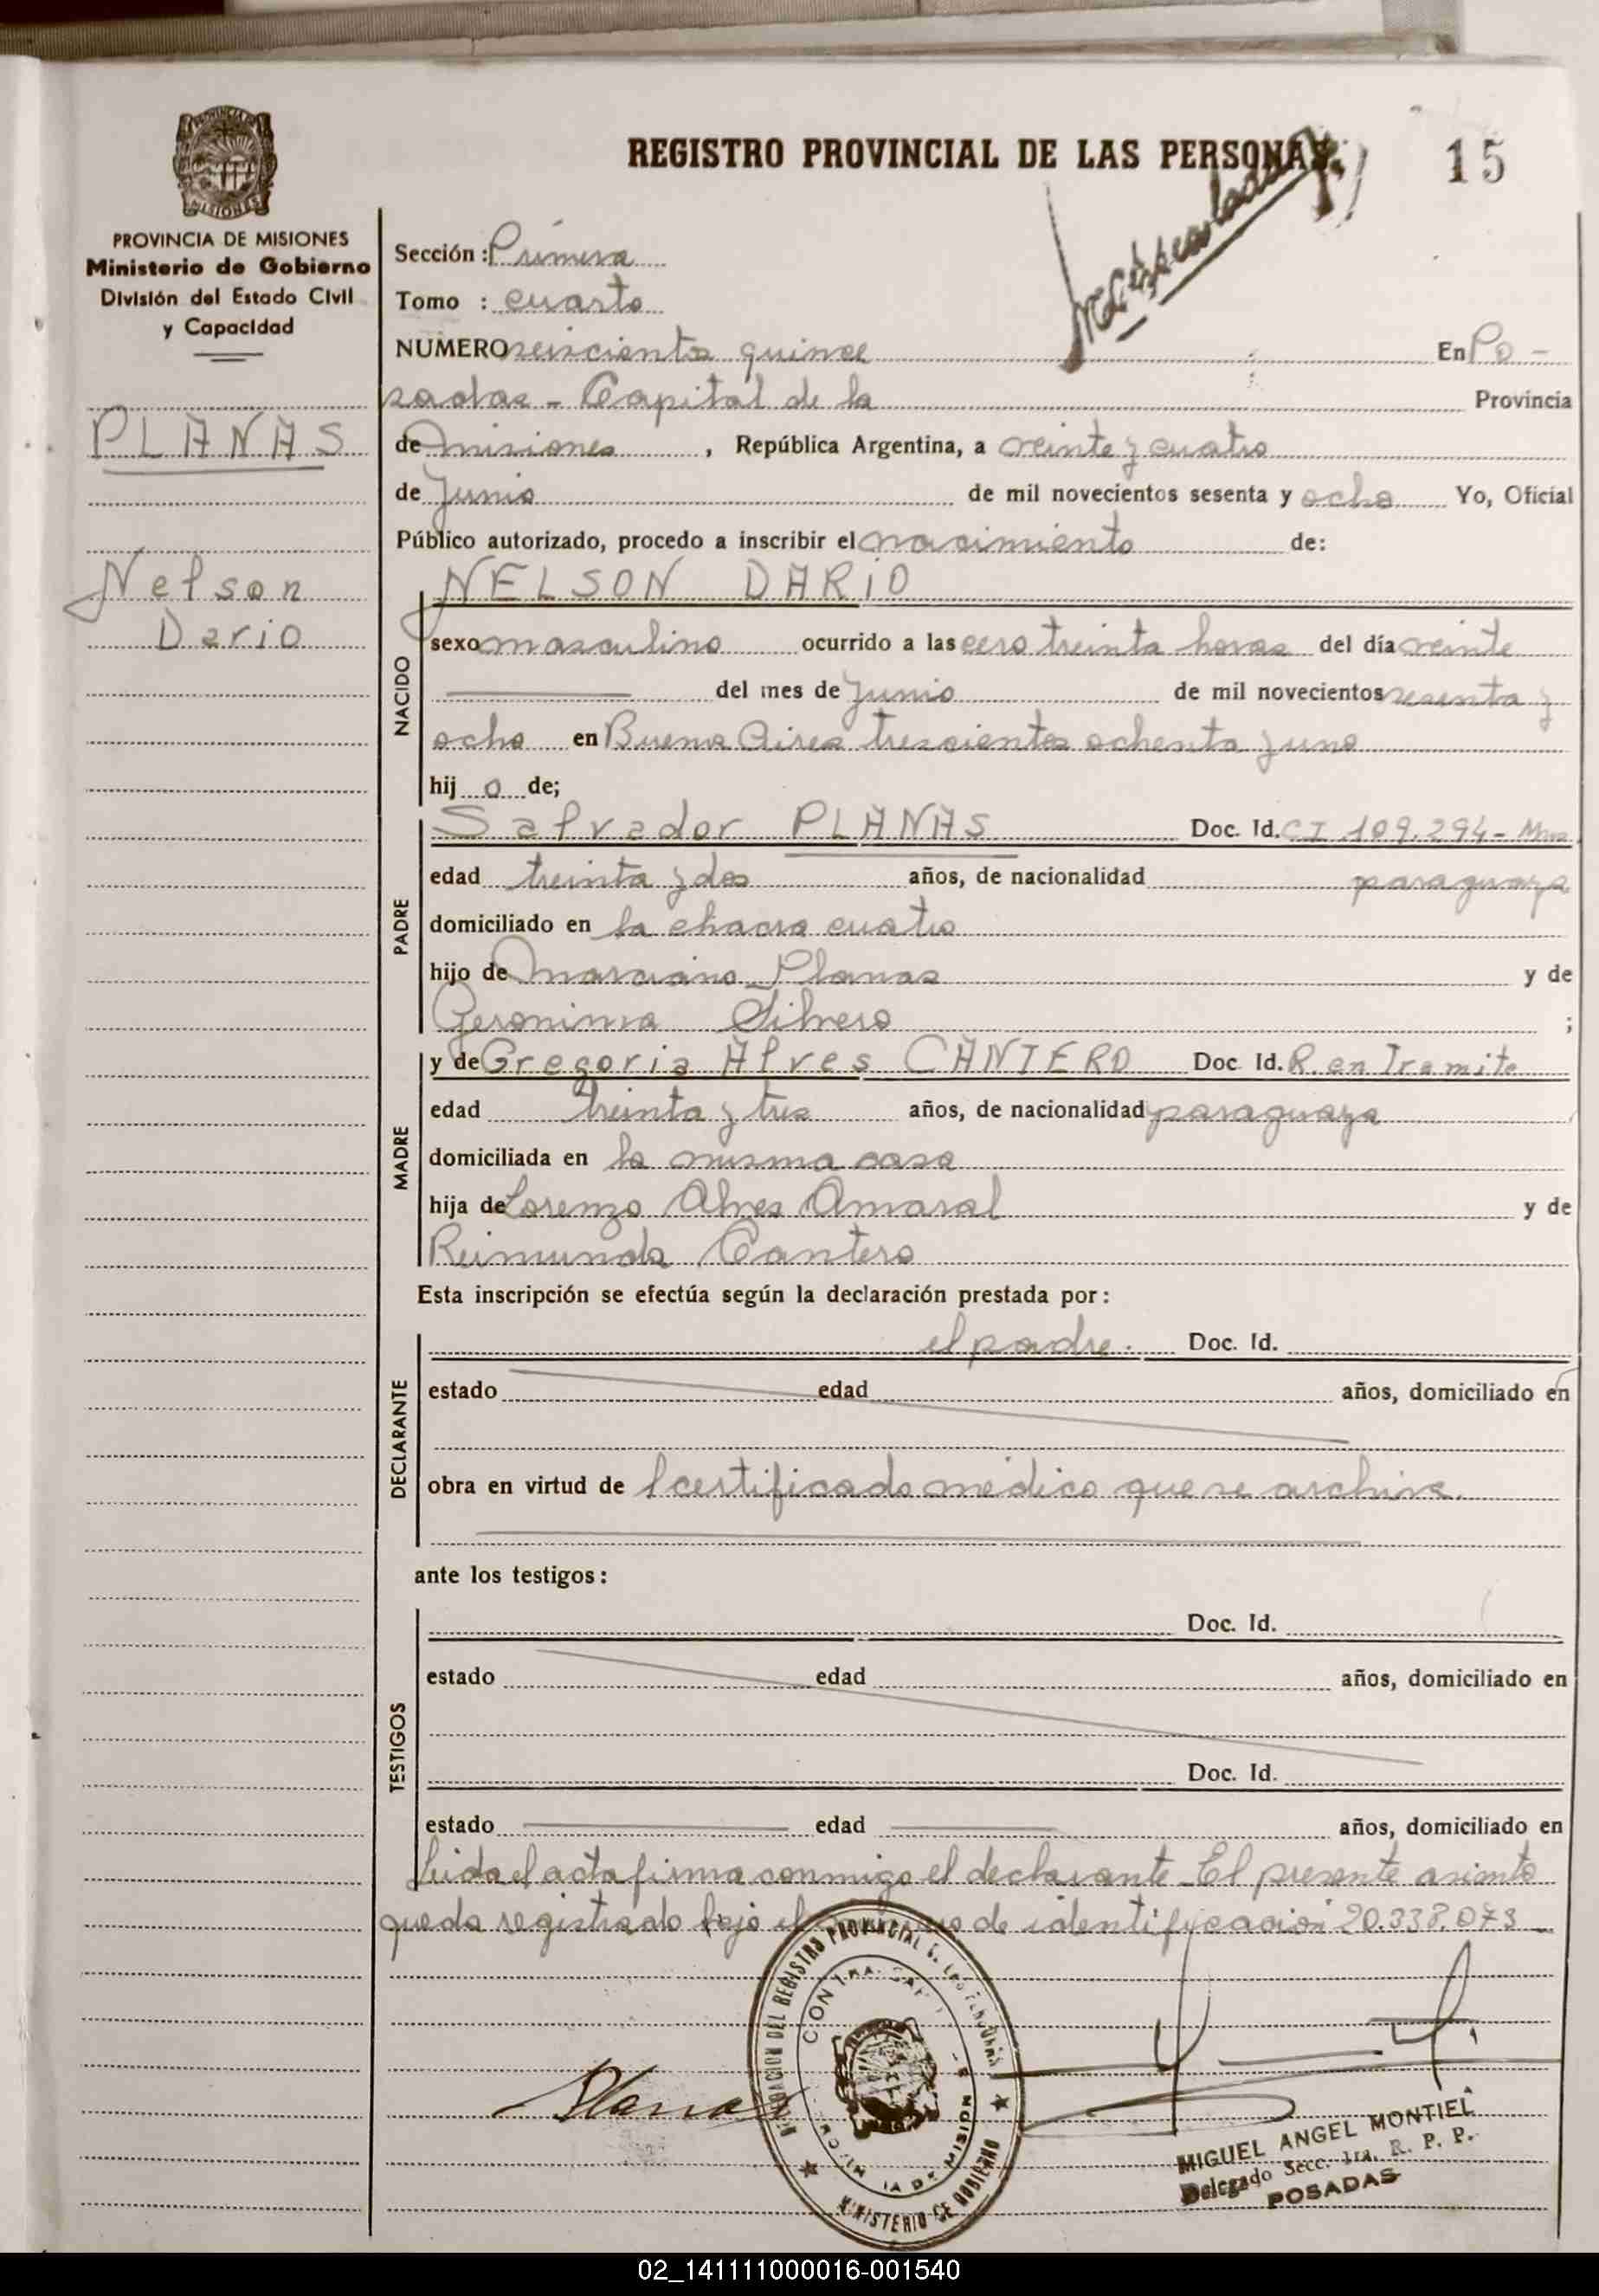 REGISTRO PROVINCIAL DE LAS PERSONAS
15
MISIONES
PROVINCIA DE MISIONES
Ministerio de Gobierno
División del Estado Civil
y Capacidad
PLANAS
Nelson
Dario
Sección : Primera
Tomo : cuarto
NUMERO seiscientos quince En Po -
sadas - Capital de la Provincia
de misiones , República Argentina, a veinte y cuatro
de Junio de mil novecientos sesenta y ocho Yo, Oficial
Público autorizado, procedo a inscribir el nacimiento de:
NELSON DARIO
NACIDO
sexo masculino ocurrido a las cero treinta horas del día veinte
del mes de Junio de mil novecientos sesenta y
ocho en Buenos Aires trescientos ochenta y uno
hij o de;
PADRE
Salvador PLANAS Doc. Id. CI 109.294 - Mnes
edad treinta y dos años, de nacionalidad paraguaya
domiciliado en la chacra cuatro
hijo de Marciano Planas y de
Geronima Silvero ;
MADRE
y de Gregoria Alves CANTERO Doc. Id. R. en Tramite
edad treinta y tres años, de nacionalidad paraguaya
domiciliada en la misma casa
hija de Lorenzo Alves Amaral y de
Reimunda Cantero
Esta inscripción se efectúa según la declaración prestada por :
DECLARANTE
el padre. Doc. Id.
estado edad años, domiciliado en
obra en virtud de l certificado médico que se archiva.
ante los testigos :
TESTIGOS
Doc. Id.
estado edad años, domiciliado en
Doc. Id.
estado edad años, domiciliado en
Leida el acta firma conmigo el declarante - El presente asiento
queda registrado bajo el de identificación 20.338.073 -
Planas
DEL REGISTRO PROVINCIAL
MINISTERIO DE GOBIERNO
MIGUEL ANGEL MONTIEL
Delegado Secc. 1ra. R. P. P.
POSADAS
02_141111000016-001540